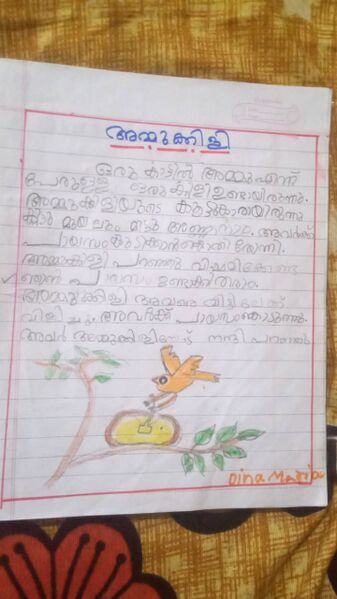 അമ്മുക്കിളി
ഒരു കാട്ടിൽ അമ്മു എന്ന്
പേരുള്ള ഒരു കിളി ഉണ്ടായിരുന്നു.
അമ്മുക്കിളിയുടെ കൂട്ടുകാരായിരുന്നു
മുയലും അവർക്ക്
പായസം കുടിക്കാൻ കൊതി തോന്നി.
അമ്മുക്കിളി പറഞ്ഞു വിഷമിക്കേണ്ട
ഞാൻ പായസം ഉണ്ടാക്കി തരാം.
അമ്മുക്കിളി അവരെ വീട്ടിലേക്ക്
വിളിച്ചു. അവർക്ക് പായസം കൊടുത്തു.
അവർ അമ്മുക്കിളിയോട് നന്ദി പറഞ്ഞു
Dina Mariya